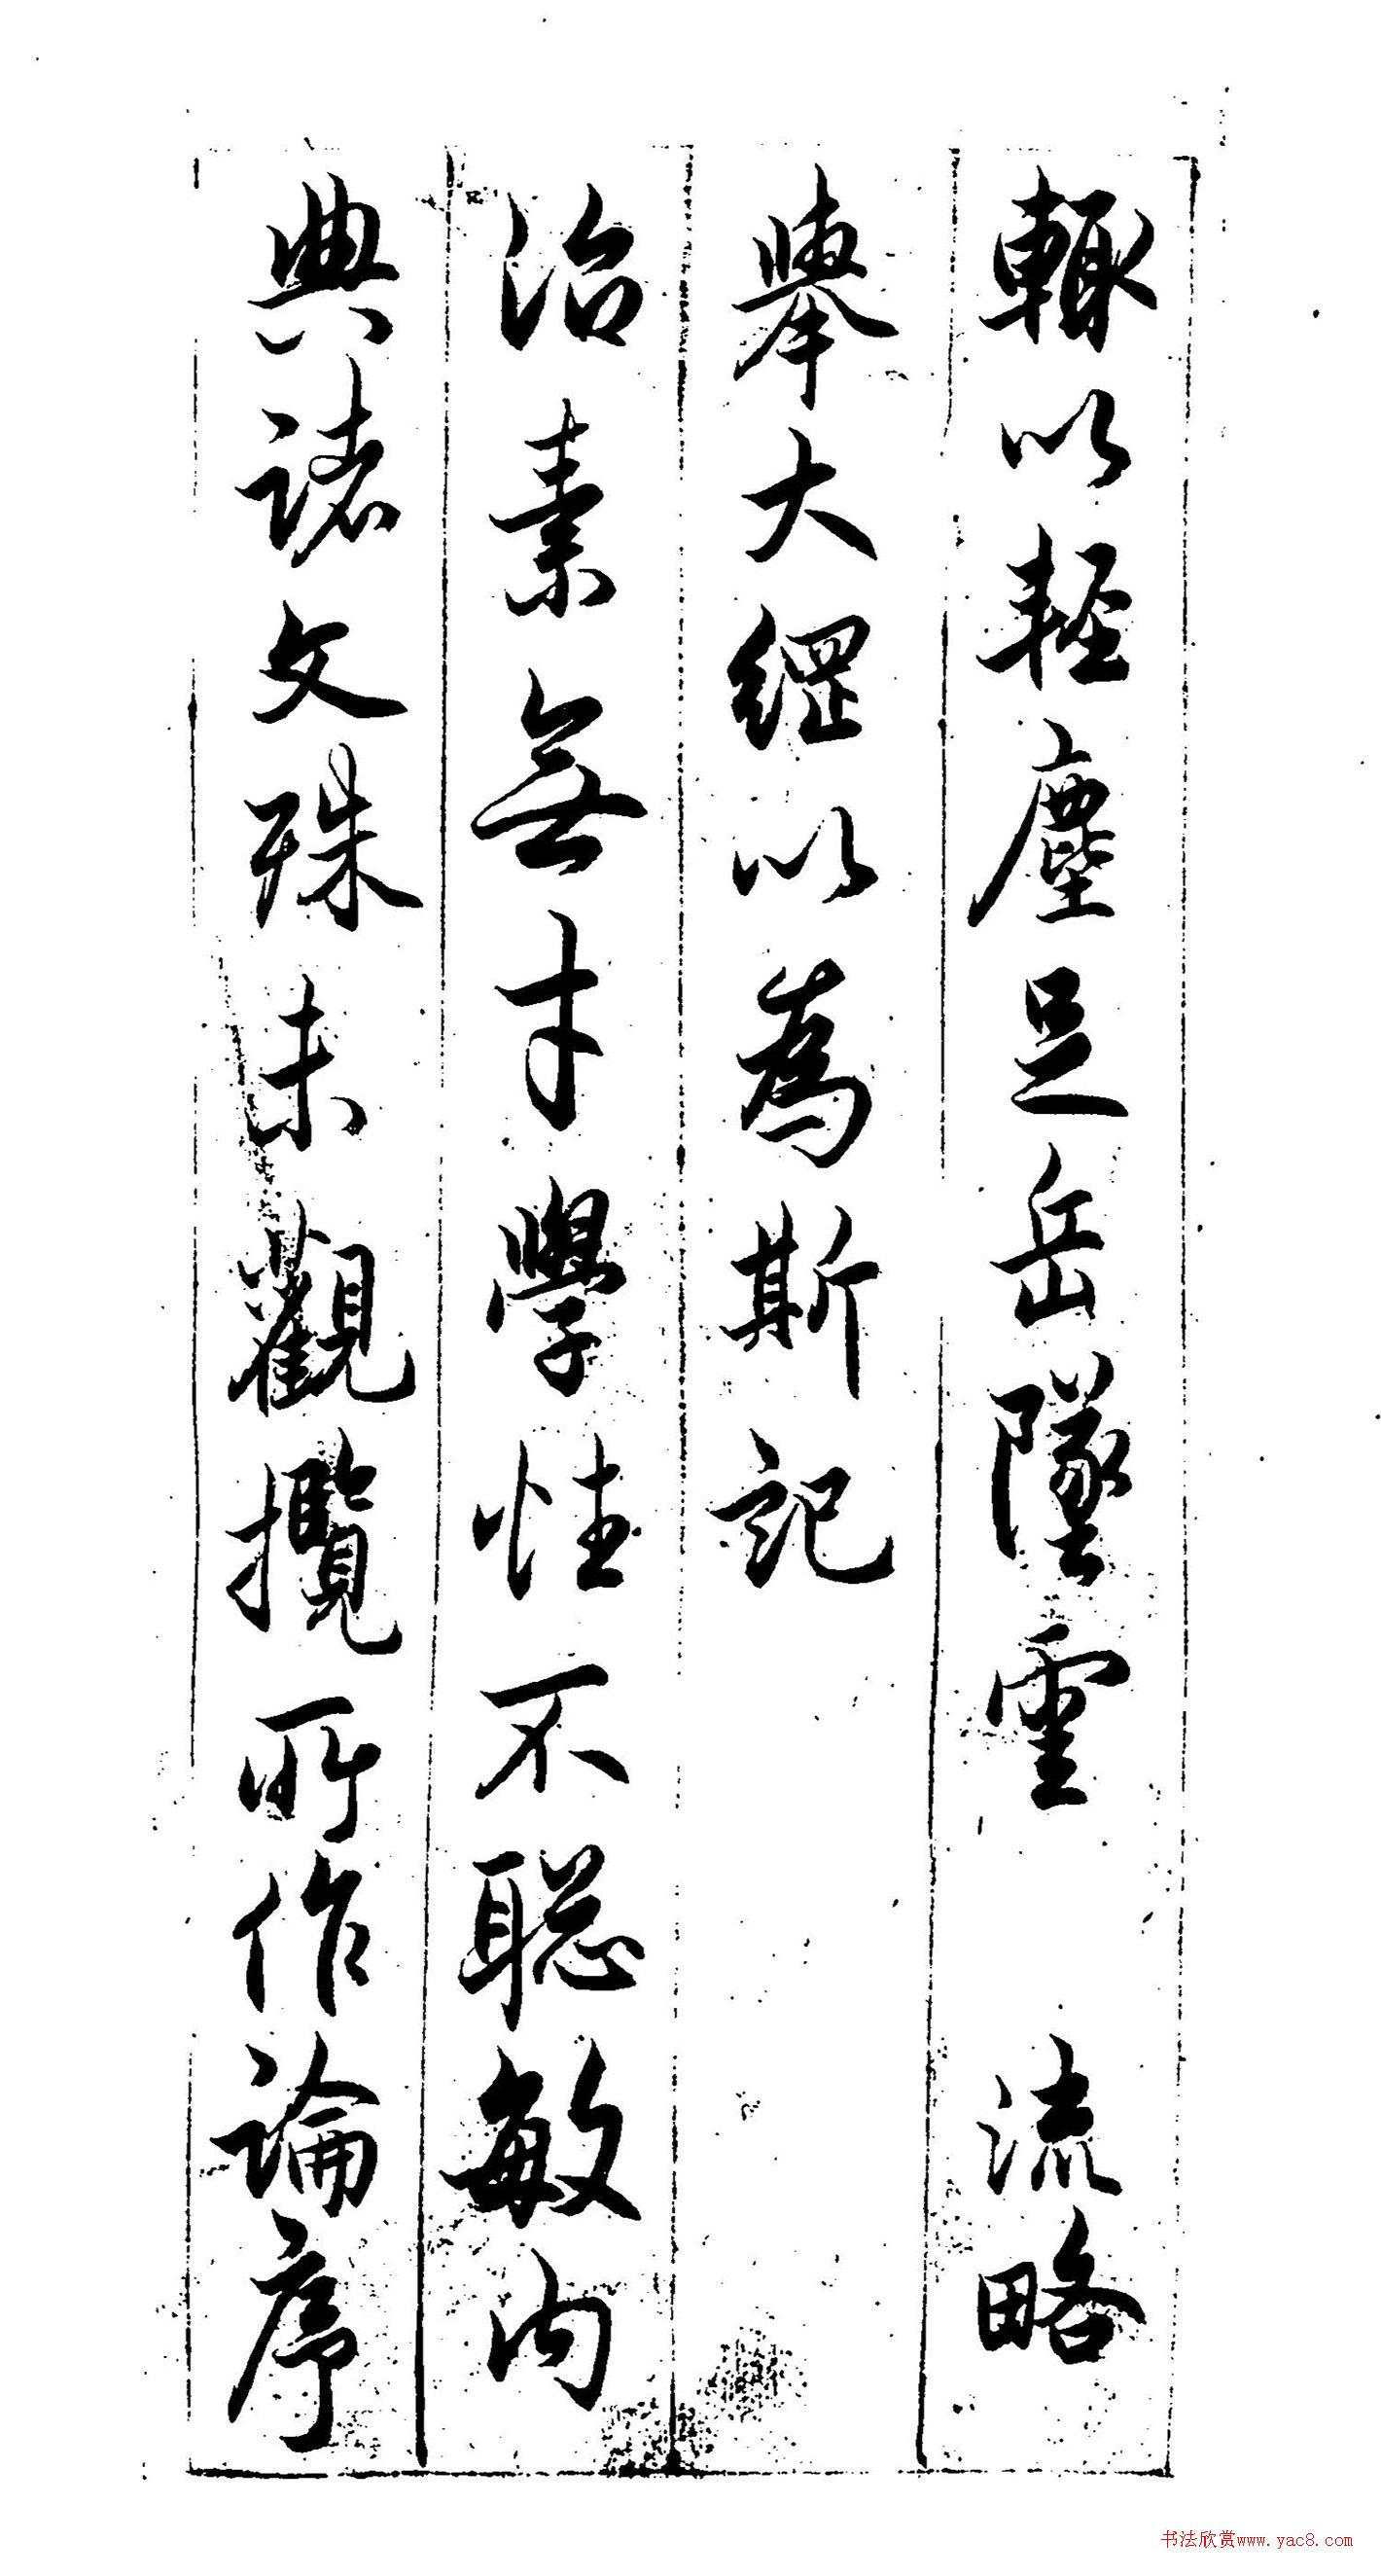 輙以輕塵足岳墜露 流略
舉大綱以為斯記
治素無才學性不聡敏内
典諸文殊未觀攬所作論序
书法欣赏www.yac8.com